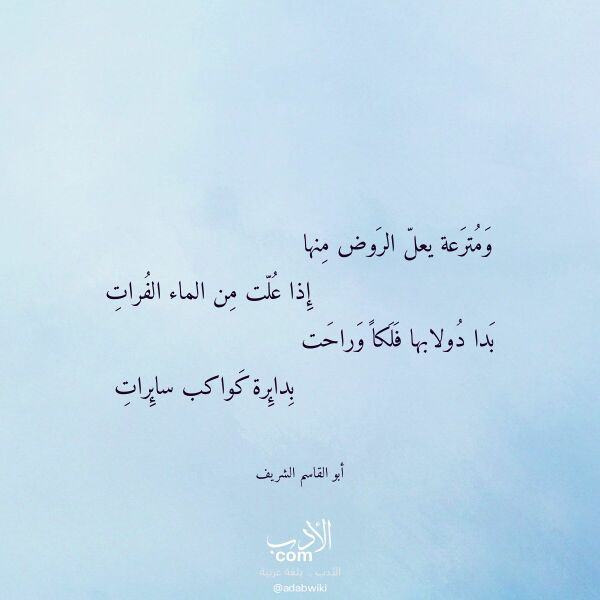 وَمُترَعة يعلّ الرَوض مِنها
إِذا عُلّت مِن الماء الفُراتِ
بَدا دُولابها فَلَكاً وَراحَت
بِدائِرة كَواكب سائِراتِ
أبو القاسم الشريف
الأدب
com
الأدب .. بلغة عربية
@adabwiki